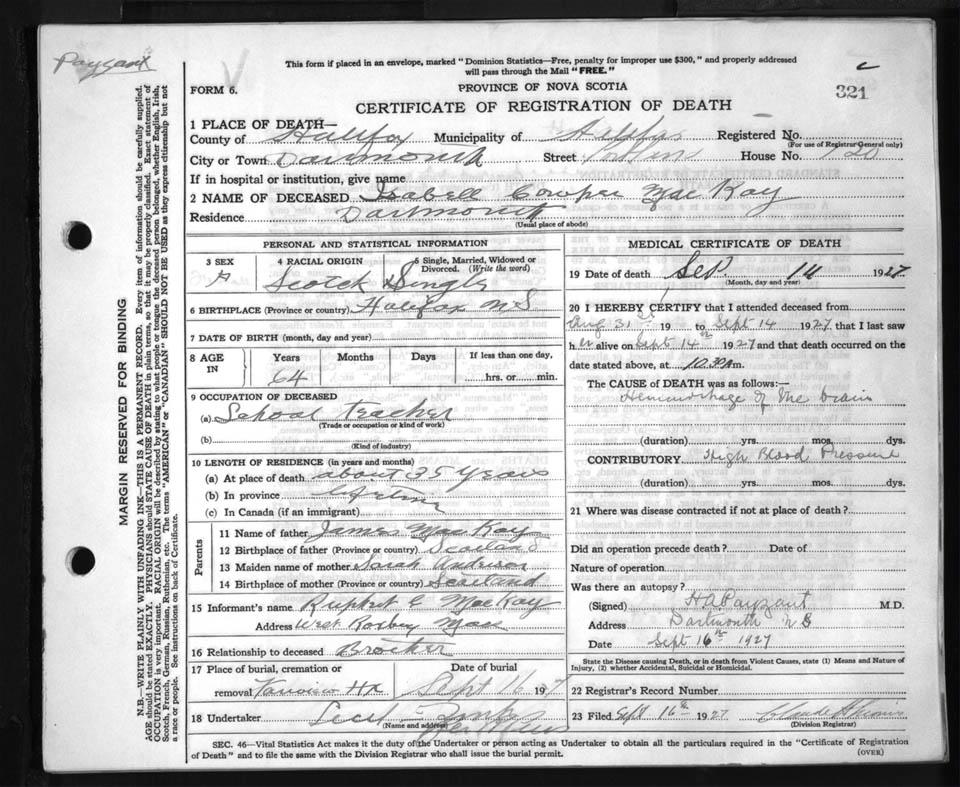 Paysant
This form if placed in an envelope, marked "Dominion Statistics—Free, penalty for improper use $300," and properly addressed
will pass through the Mail "FREE."
FORM 6.
PROVINCE OF NOVA SCOTIA
321
CERTIFICATE OF REGISTRATION OF DEATH
1 PLACE OF DEATH—
County of Halifax Municipality of Halifax Registered No.
(For use of Registrar General only)
City or Town Dartmouth Street House No.
If in hospital or institution, give name
2 NAME OF DECEASED Isabell Cowper MacKay
Residence Dartmouth
(Usual place of abode)
PERSONAL AND STATISTICAL INFORMATION
3 SEX
4 RACIAL ORIGIN
5 Single, Married, Widowed or Divorced. (Write the word)
F Scotch Single
6 BIRTHPLACE (Province or country) Halifax N S
7 DATE OF BIRTH (month, day and year)
8 AGE IN
Years Months Days If less than one day,
64 hrs. or min.
9 OCCUPATION OF DECEASED
(a) School Teacher
(Trade or occupation or kind of work)
(b)
(Kind of industry)
10 LENGTH OF RESIDENCE (in years and months)
(a) At place of death about 35 Years
(b) In province Life time
(c) In Canada (if an immigrant)
Parents
11 Name of father James MacKay
12 Birthplace of father (Province or country) Scotland
13 Maiden name of mother Sarah Anderson
14 Birthplace of mother (Province or country) Scotland
15 Informant's name Rupert C MacKay
Address West Roxbury Mass
16 Relationship to deceased Brother
17 Place of burial, cremation or Date of burial
removal Fairview Hx Sept 16 1927
18 Undertaker Cecil
(Name and address)
MEDICAL CERTIFICATE OF DEATH
19 Date of death Sep. 14 1927
(Month, day and year)
20 I HEREBY CERTIFY that I attended deceased from
Aug 31st 19 to Sept 14 1927 that I last saw
h er alive on Sept 14th 1927 and that death occurred on
date stated above, at 10.30 m.
The CAUSE OF DEATH was as follows:—
Hemorrhage of the brain
(duration) yrs. mos. dys.
CONTRIBUTORY High Blood Pressure
(duration) yrs. mos. dys.
21 Where was disease contracted if not at place of death?
Did an operation precede death? Date of
Nature of operation
Was there an autopsy?
(Signed) H A Paysant M.D.
Address Dartmouth N S
Date Sept 16th 1927
State the Disease causing Death, or in death from Violent Causes, state (1) Means and Nature of
Injury, (2) whether Accidental, Suicidal or Homicidal.
22 Registrar's Record Number
23 Filed Sept 16th 1927
(Division Registrar)
SEC. 46—Vital Statistics Act makes it the duty of the Undertaker or person acting as Undertaker to obtain all the particulars required in the "Certificate of Registration
of Death" and to file the same with the Division Registrar who shall issue the burial permit.
(OVER)
MARGIN RESERVED FOR BINDING
N.B.—WRITE PLAINLY WITH UNFADING INK—THIS IS A PERMANENT RECORD. Every item of information should be carefully supplied.
AGE should be stated EXACTLY. PHYSICIANS should STATE CAUSE OF DEATH in plain terms, so that it may be properly classified. Exact statement of
OCCUPATION is very important. RACIAL ORIGIN will be described by stating to what people or tongue the deceased person belonged, whether English, Irish,
Scotch, French, German, Russian, Ruthenian, etc. The terms "AMERICAN" or "CANADIAN" SHOULD NOT BE USED as they express citizenship but not
a race or people. See instructions on back of Certificate.